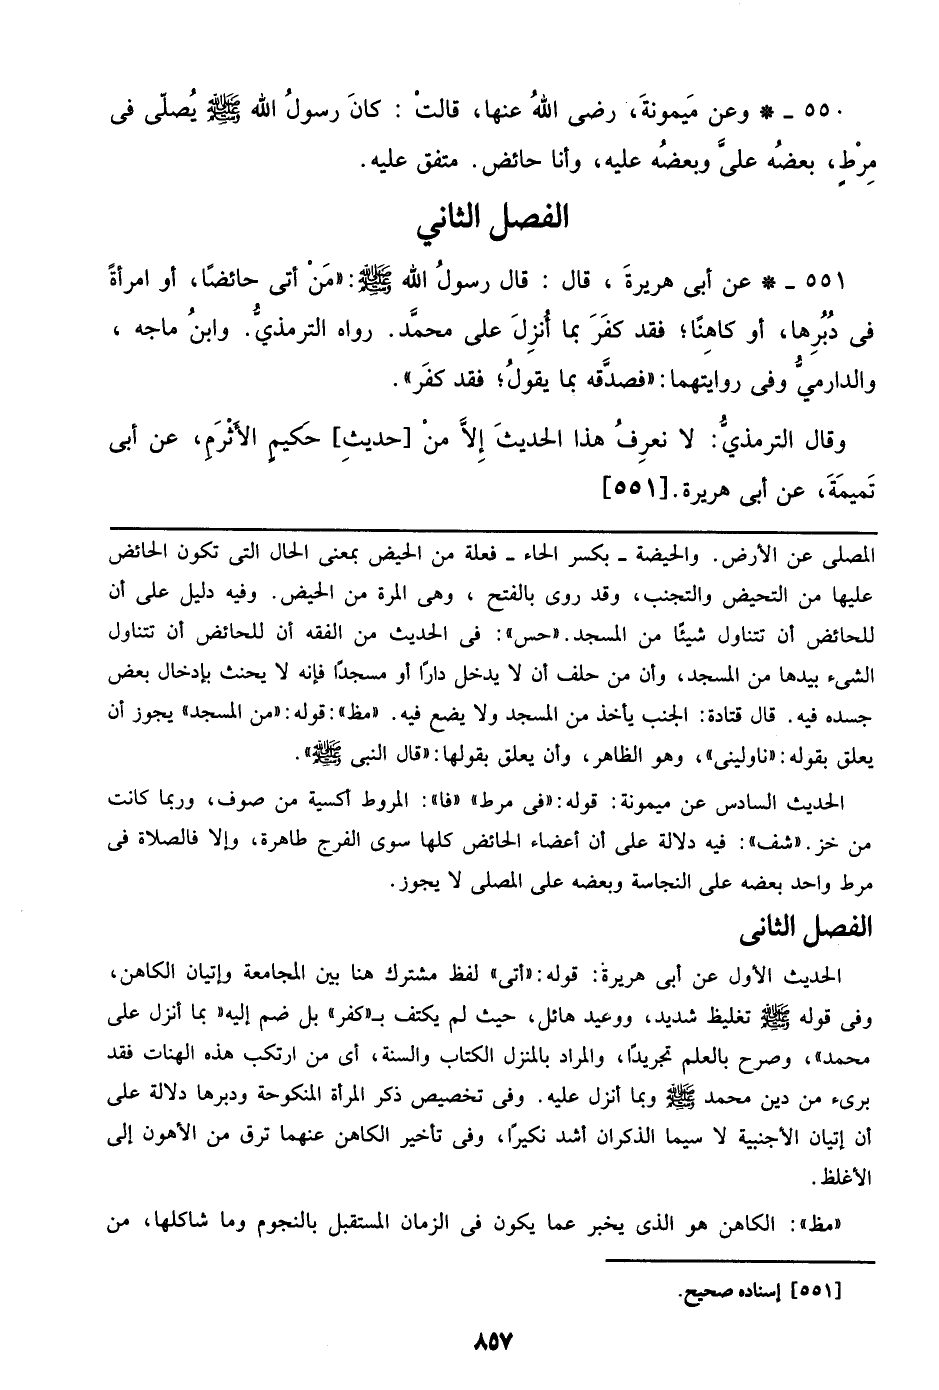 ٥٥٠ ـ * وعن مَيمونةَ، رضى اللهُ عنها، قالتْ : كانَ رسولُ الله ﷺ يُصلّى فى
مِرْطٍ، بعضُه علىَّ وبعضُه عليه، وأنا حائض. متفق عليه.
الفصل الثاني
٥٥١ ـ * عن أبى هريرةَ ، قال : قال رسولُ الله ﷺ:«مَنْ أتى حائضًا، أو امرأةً
فى دُبُرِها، أو كاهِنًا؛ فقد كفَرَ بما أُنزِلَ على محمَّد. رواه الترمذيُّ. وابنُ ماجه ،
والدارميُّ وفى روايتهما:«فصدَّقه بما يقولُ؛ فقد كفَر».
وقال الترمذيُّ: لا نعرِفُ هذا الحديثَ إِلاَّ منْ [حديثِ] حَكيمٍ الأَثْرَمِ، عن أبى
تَميمَةَ، عن أبى هريرة.[٥٥١]
المصلى عن الأرض. والحيضة ـ بكسر الحاء ـ فعلة من الحيض بمعنى الحال التى تكون الحائض
عليها من التحيض والتجنب، وقد روى بالفتح ، وهى المرة من الحيض. وفيه دليل على أن
للحائض أن تتناول شيئًا من المسجد.«حس»: فى الحديث من الفقه أن للحائض أن تتناول
الشىء بيدها من المسجد، وأن من حلف أن لا يدخل دارًا أو مسجدًا فإنه لا يحنث بإدخال بعض
جسده فيه. قال قتادة: الجنب يأخذ من المسجد ولا يضع فيه. «مظ»:قوله:«من المسجد» يجوز أن
يعلق بقوله:«ناولينى»، وهو الظاهر، وأن يعلق بقولها:«قال النبى ﷺ».
الحديث السادس عن ميمونة: قوله:«فى مرط» «فا»: المروط أكسية من صوف، وربما كانت
من خز.«شف»: فيه دلالة على أن أعضاء الحائض كلها سوى الفرج طاهرة، وإلا فالصلاة فى
مرط واحد بعضه على النجاسة وبعضه على المصلى لا يجوز.
الفصل الثانى
الحديث الأول عن أبى هريرة: قوله:«أتى» لفظ مشترك هنا بين المجامعة وإتيان الكاهن،
وفى قوله ﷺ تغليظ شديد، ووعيد هائل، حيث لم يكتف بـ«كفر» بل ضم إليه« بما أنزل على
محمد»، وصرح بالعلم تجريدًا، والمراد بالمنزل الكتاب والسنة، أى من ارتكب هذه الهنات فقد
برىء من دين محمد ﷺ وبما أنزل عليه. وفى تخصيص ذكر المرأة المنكوحة ودبرها دلالة على
أن إتيان الأجنبية لا سيما الذكران أشد نكيرًا، وفى تأخير الكاهن عنهما ترق من الأهون إلى
الأغلظ.
«مظ»: الكاهن هو الذى يخبر عما يكون فى الزمان المستقبل بالنجوم وما شاكلها، من
[٥٥١] إسناده صحيح.
٨٥٧